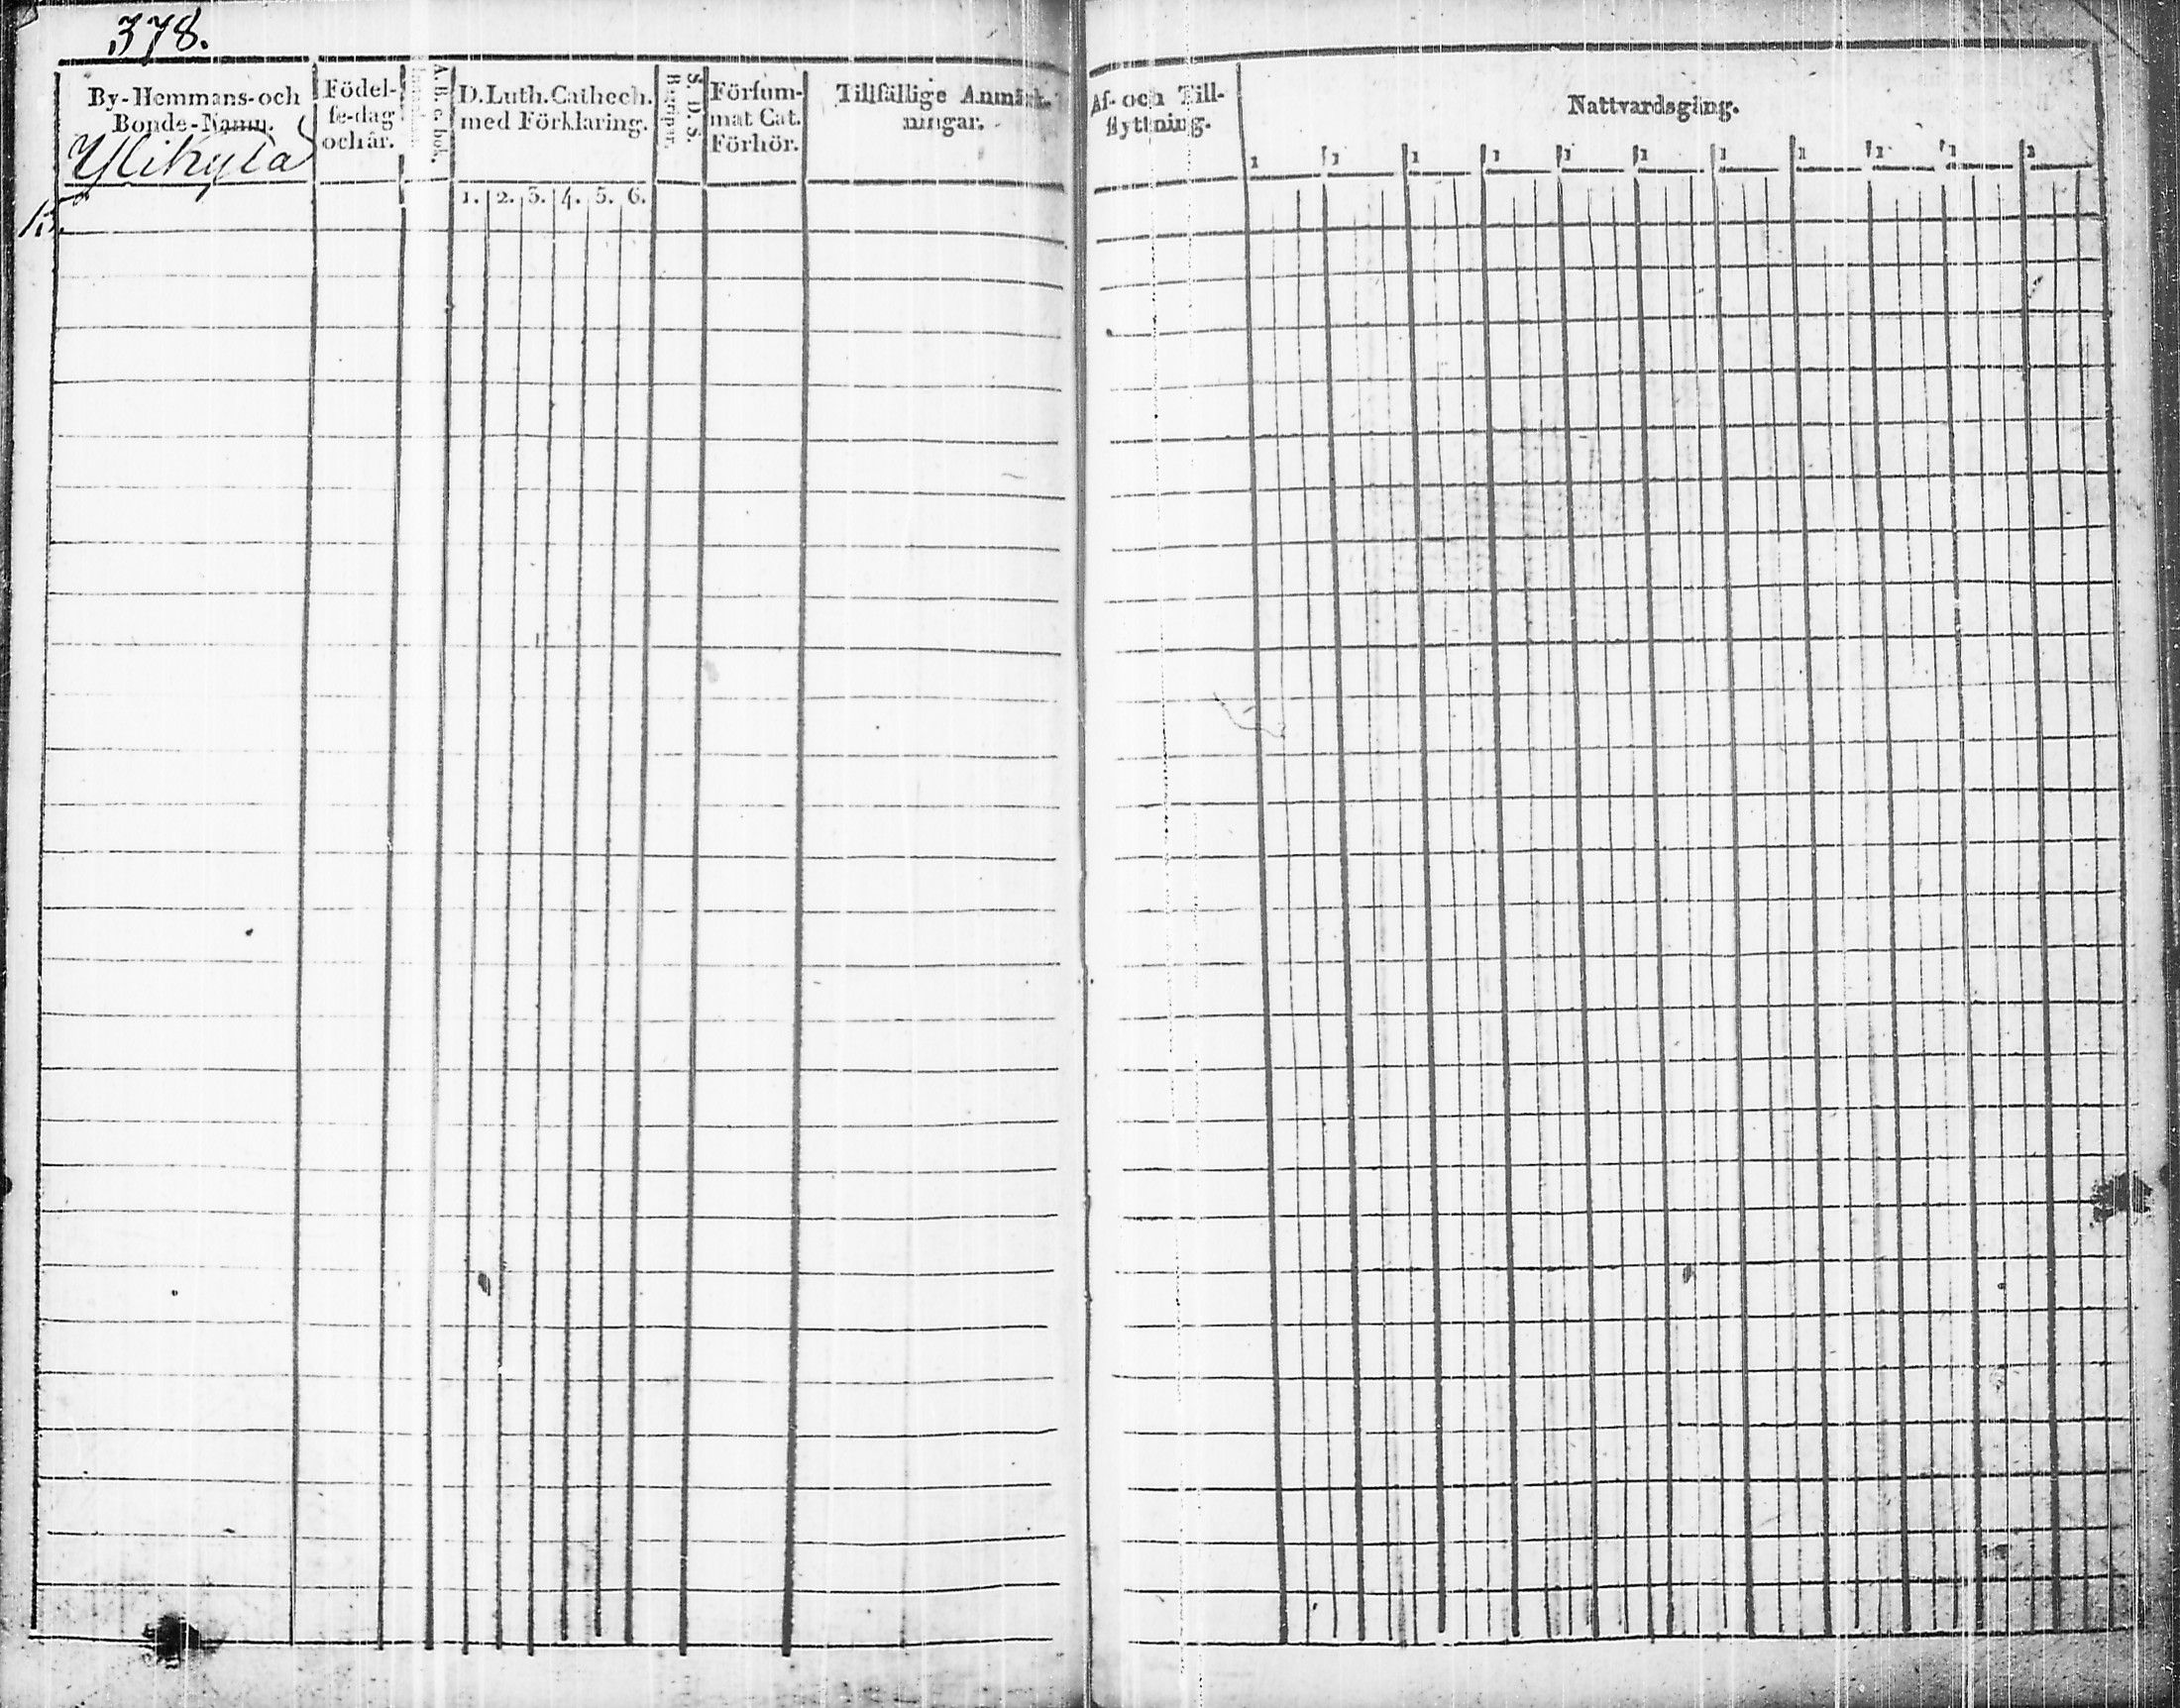 378.
By-Hemmans-och
Bonde-Namn.
Ylikylä
Födel-
se-dag
och år.
A. B. c bok.
D. Luth. Cathech.
med Förklaring.
1. 2. 3. 4. 5. 6.
Begriper.
S. D. S.
Försum-
mat Cat.
Förhör.
Tillfällige Anmärk-
ningar.
Af- och Till-
flyttning.
Nattvardsgång.
1 1 1 1 1 1 1 1 1 1 1